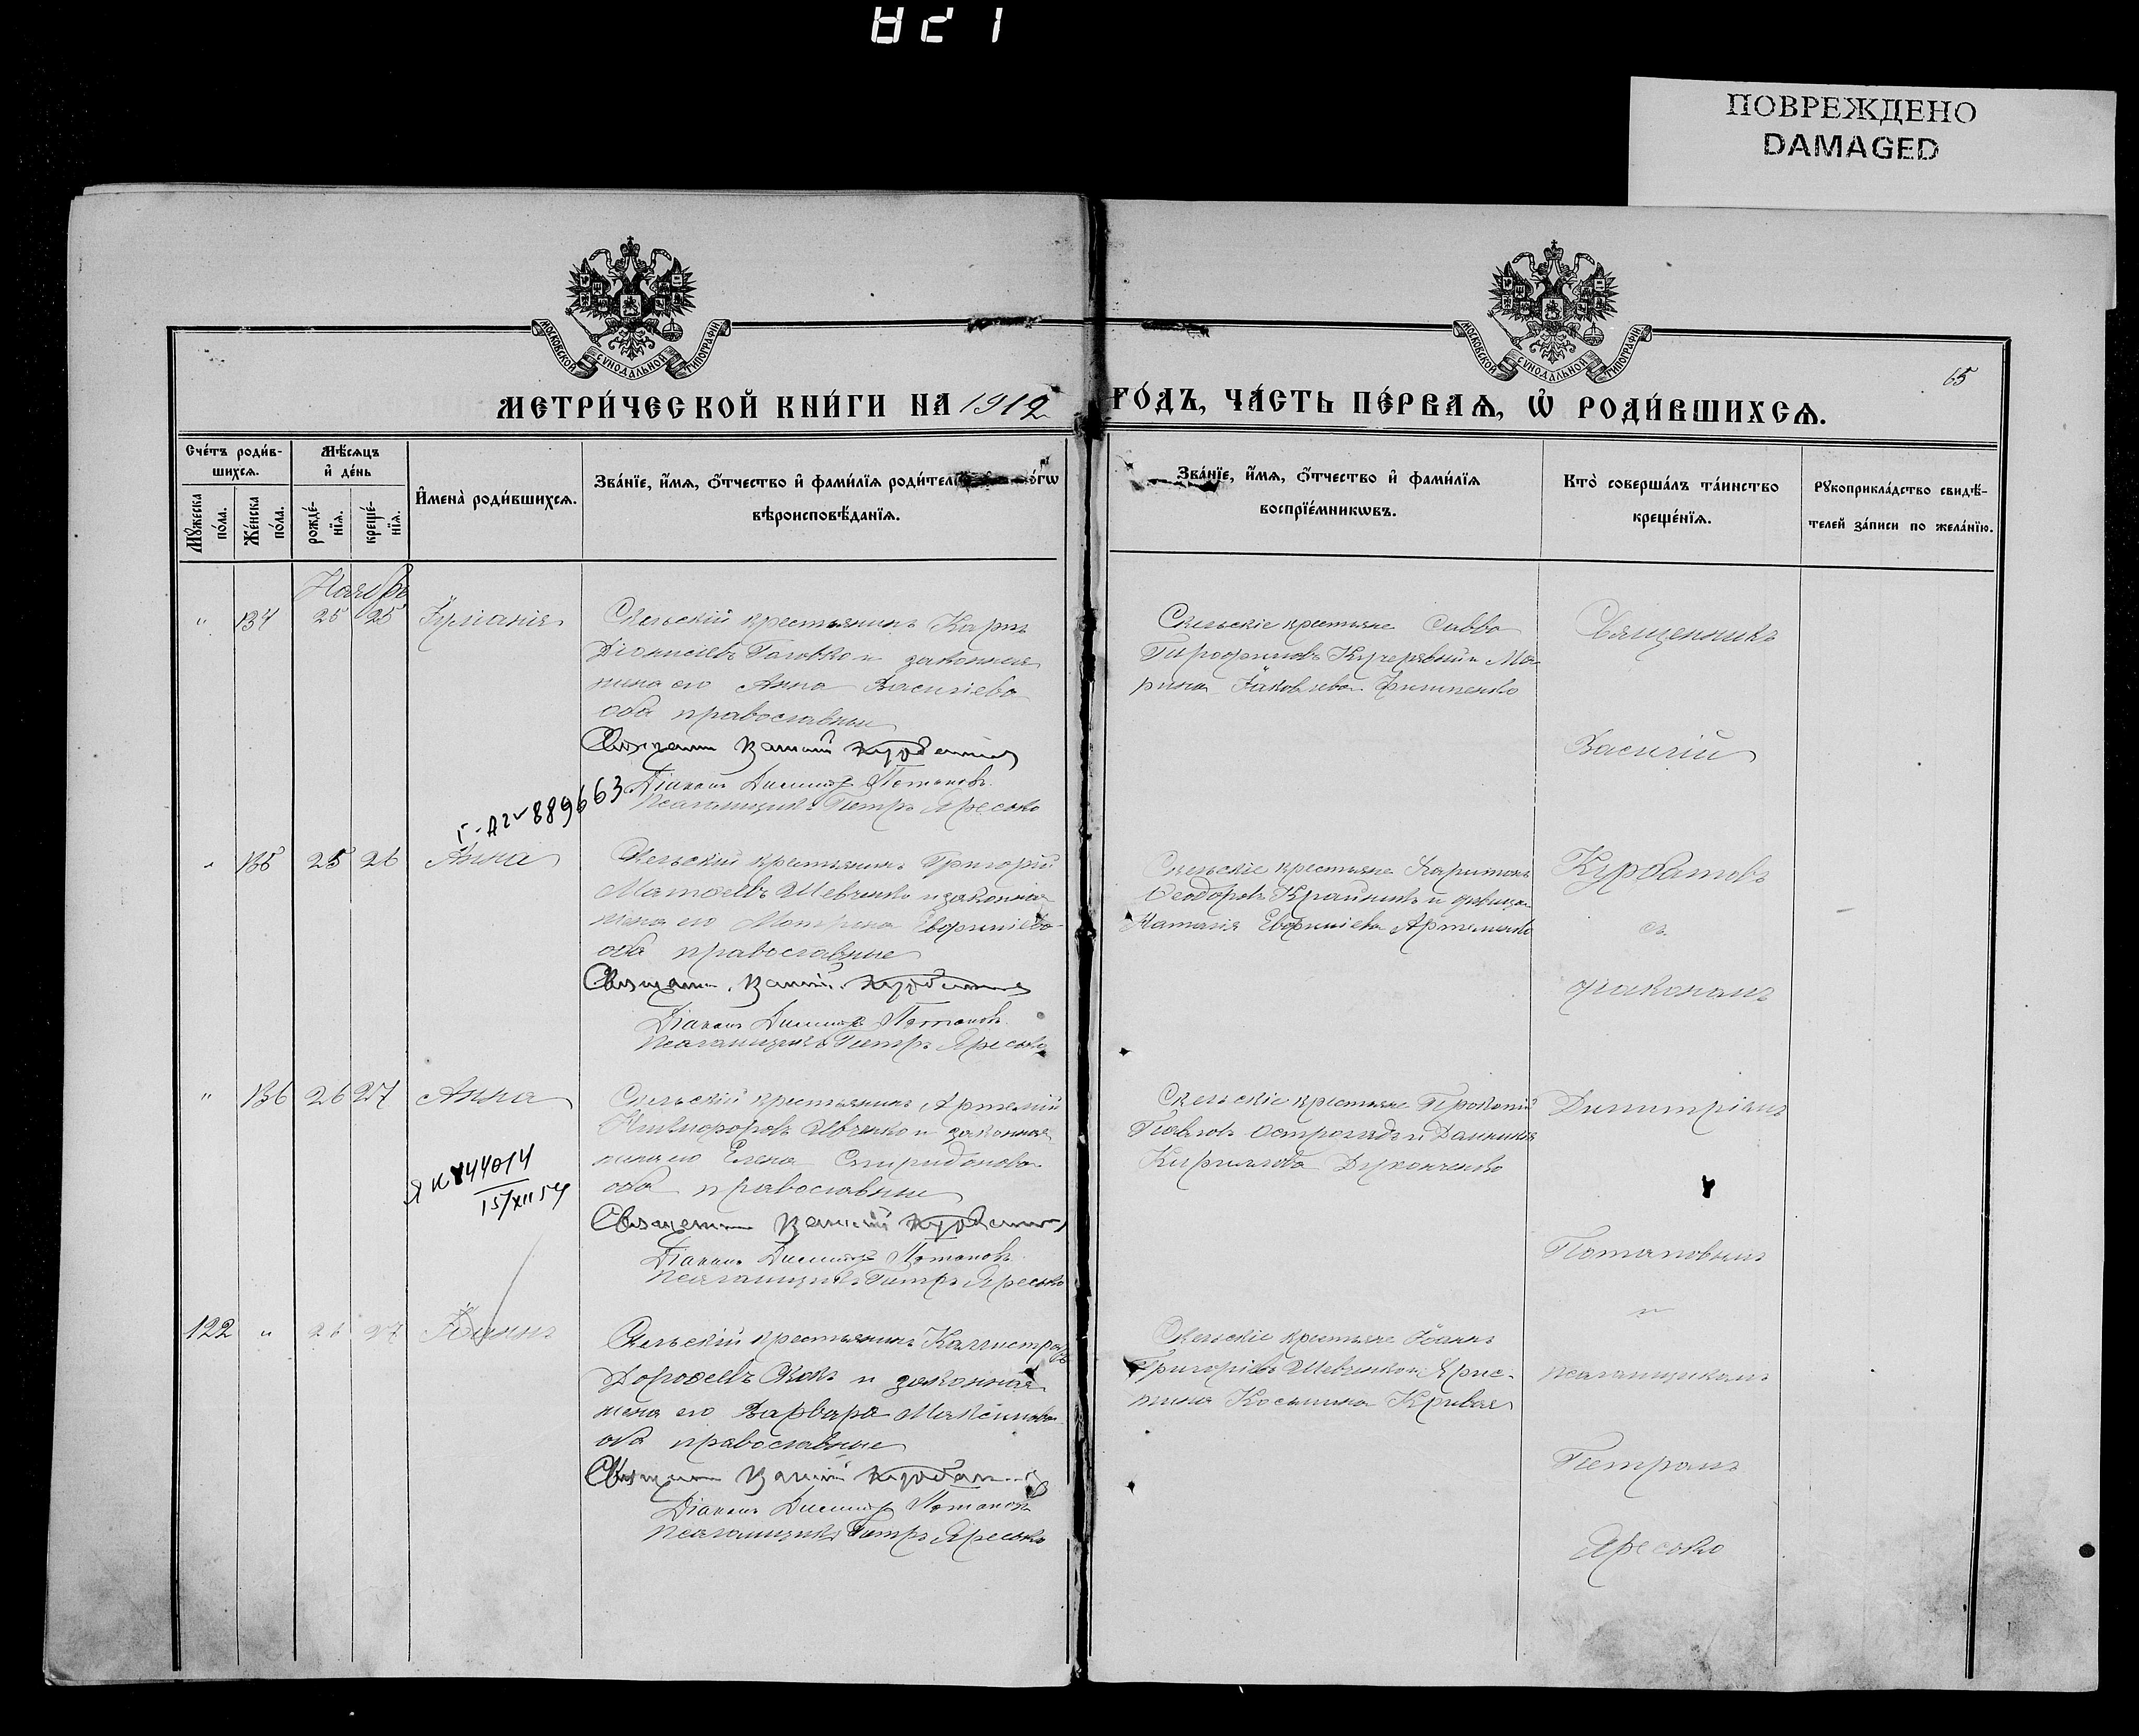 821
ПОВРЕЖДЕНО
DAMAGED
МОСКОВСКОЙ СѴНОДАЛЬНОЙ ТИПОГРАФІИ
МОСКОВСКОЙ СѴНОДАЛЬНОЙ ТИПОГРАФІИ
65
МЕТРИ́ЧЕСКОЙ КНИ́ГИ НА 1912 ГО́ДЪ, ЧА́СТЬ ПЕ́РВАѦ, Ѡ҆ РОДИ́ВШИХСѦ.
Сче́тъ роди́в-
шихсѧ.
Мꙋ́жеска по́ла.
Же́нска по́ла.
Мѣ́сѧцъ
и҆ де́нь
рожде́-
нїѧ.
креще́-
нїѧ.
И҆мена̀ роди́вшихсѧ.
Зва́нїе, и҆́мѧ, ѻ҆́тчество и҆ фами́лїѧ родител
вѣроисповѣ́данїѧ.
Зва́нїе, и҆́мѧ, ѻ҆́тчество и҆ фами́лїѧ
воспрїе́мникѡвъ.
Кто̀ соверша́лъ та́инство
креще́нїѧ.
Рꙋкоприкла́дство свидѣ́-
телей за́писи по жела́нїю.
Ноябрь
" 134 25 25 Іуліанія
Скельскій крестьянинъ Карпъ
Діонисіевъ Головко и законная
жена его Анна Василіева
оба православные
Священникъ Василій Курбатовъ
Діаконъ Димитрій Потаповъ
Псаломщикъ Петръ Яресько
Скельскіе крестьяне Савва
Кучерявый и Ма-
рина Іаковлева Филипенко
Священникъ
Василій
889663
" 135 25 26 Анна
Скельскій крестьянинъ Григорій
Матѳеевъ Шевченко и законная
жена его Мотрона Евфиміева
оба православные
Священникъ Василій Курбатовъ
Діаконъ Димитрій Потаповъ
Псаломщикъ Петръ Яресько
Скельскіе крестьяне Харитонъ
Ѳеодоровъ Крайникъ и девица
Наталія Евфиміева Артеменко
Курбатовъ
съ
діакономъ
" 136 26 27 Анна
Скельскій крестьянинъ Артемій
Никифоровъ Ивченко и законная
жена его Елена Спиридонова
оба православные
Священникъ Василій Курбатовъ
Діаконъ Димитрій Потаповъ
Псаломщикъ Петръ Яресько
Скельскіе крестьяне Прокопій
Павловъ Остроградъ и Домникія
Кириллова
Димитріемъ
Потаповымъ
и
ЯК 744014
15/XII 54
122 " 26 27 Іоаннъ
Скельскій крестьянинъ Каллистратъ
Дороѳеевъ и законная
жена его Варвара Максимова
оба православные
Священникъ Василій Курбатовъ
Діаконъ Димитрій Потаповъ
Псаломщикъ Петръ Яресько
Скельскіе крестьяне Іоаннъ
Григоріевъ Шевченко и Хрис-
тина Косьмина Кривая
псаломщикомъ
Петромъ
Яресько